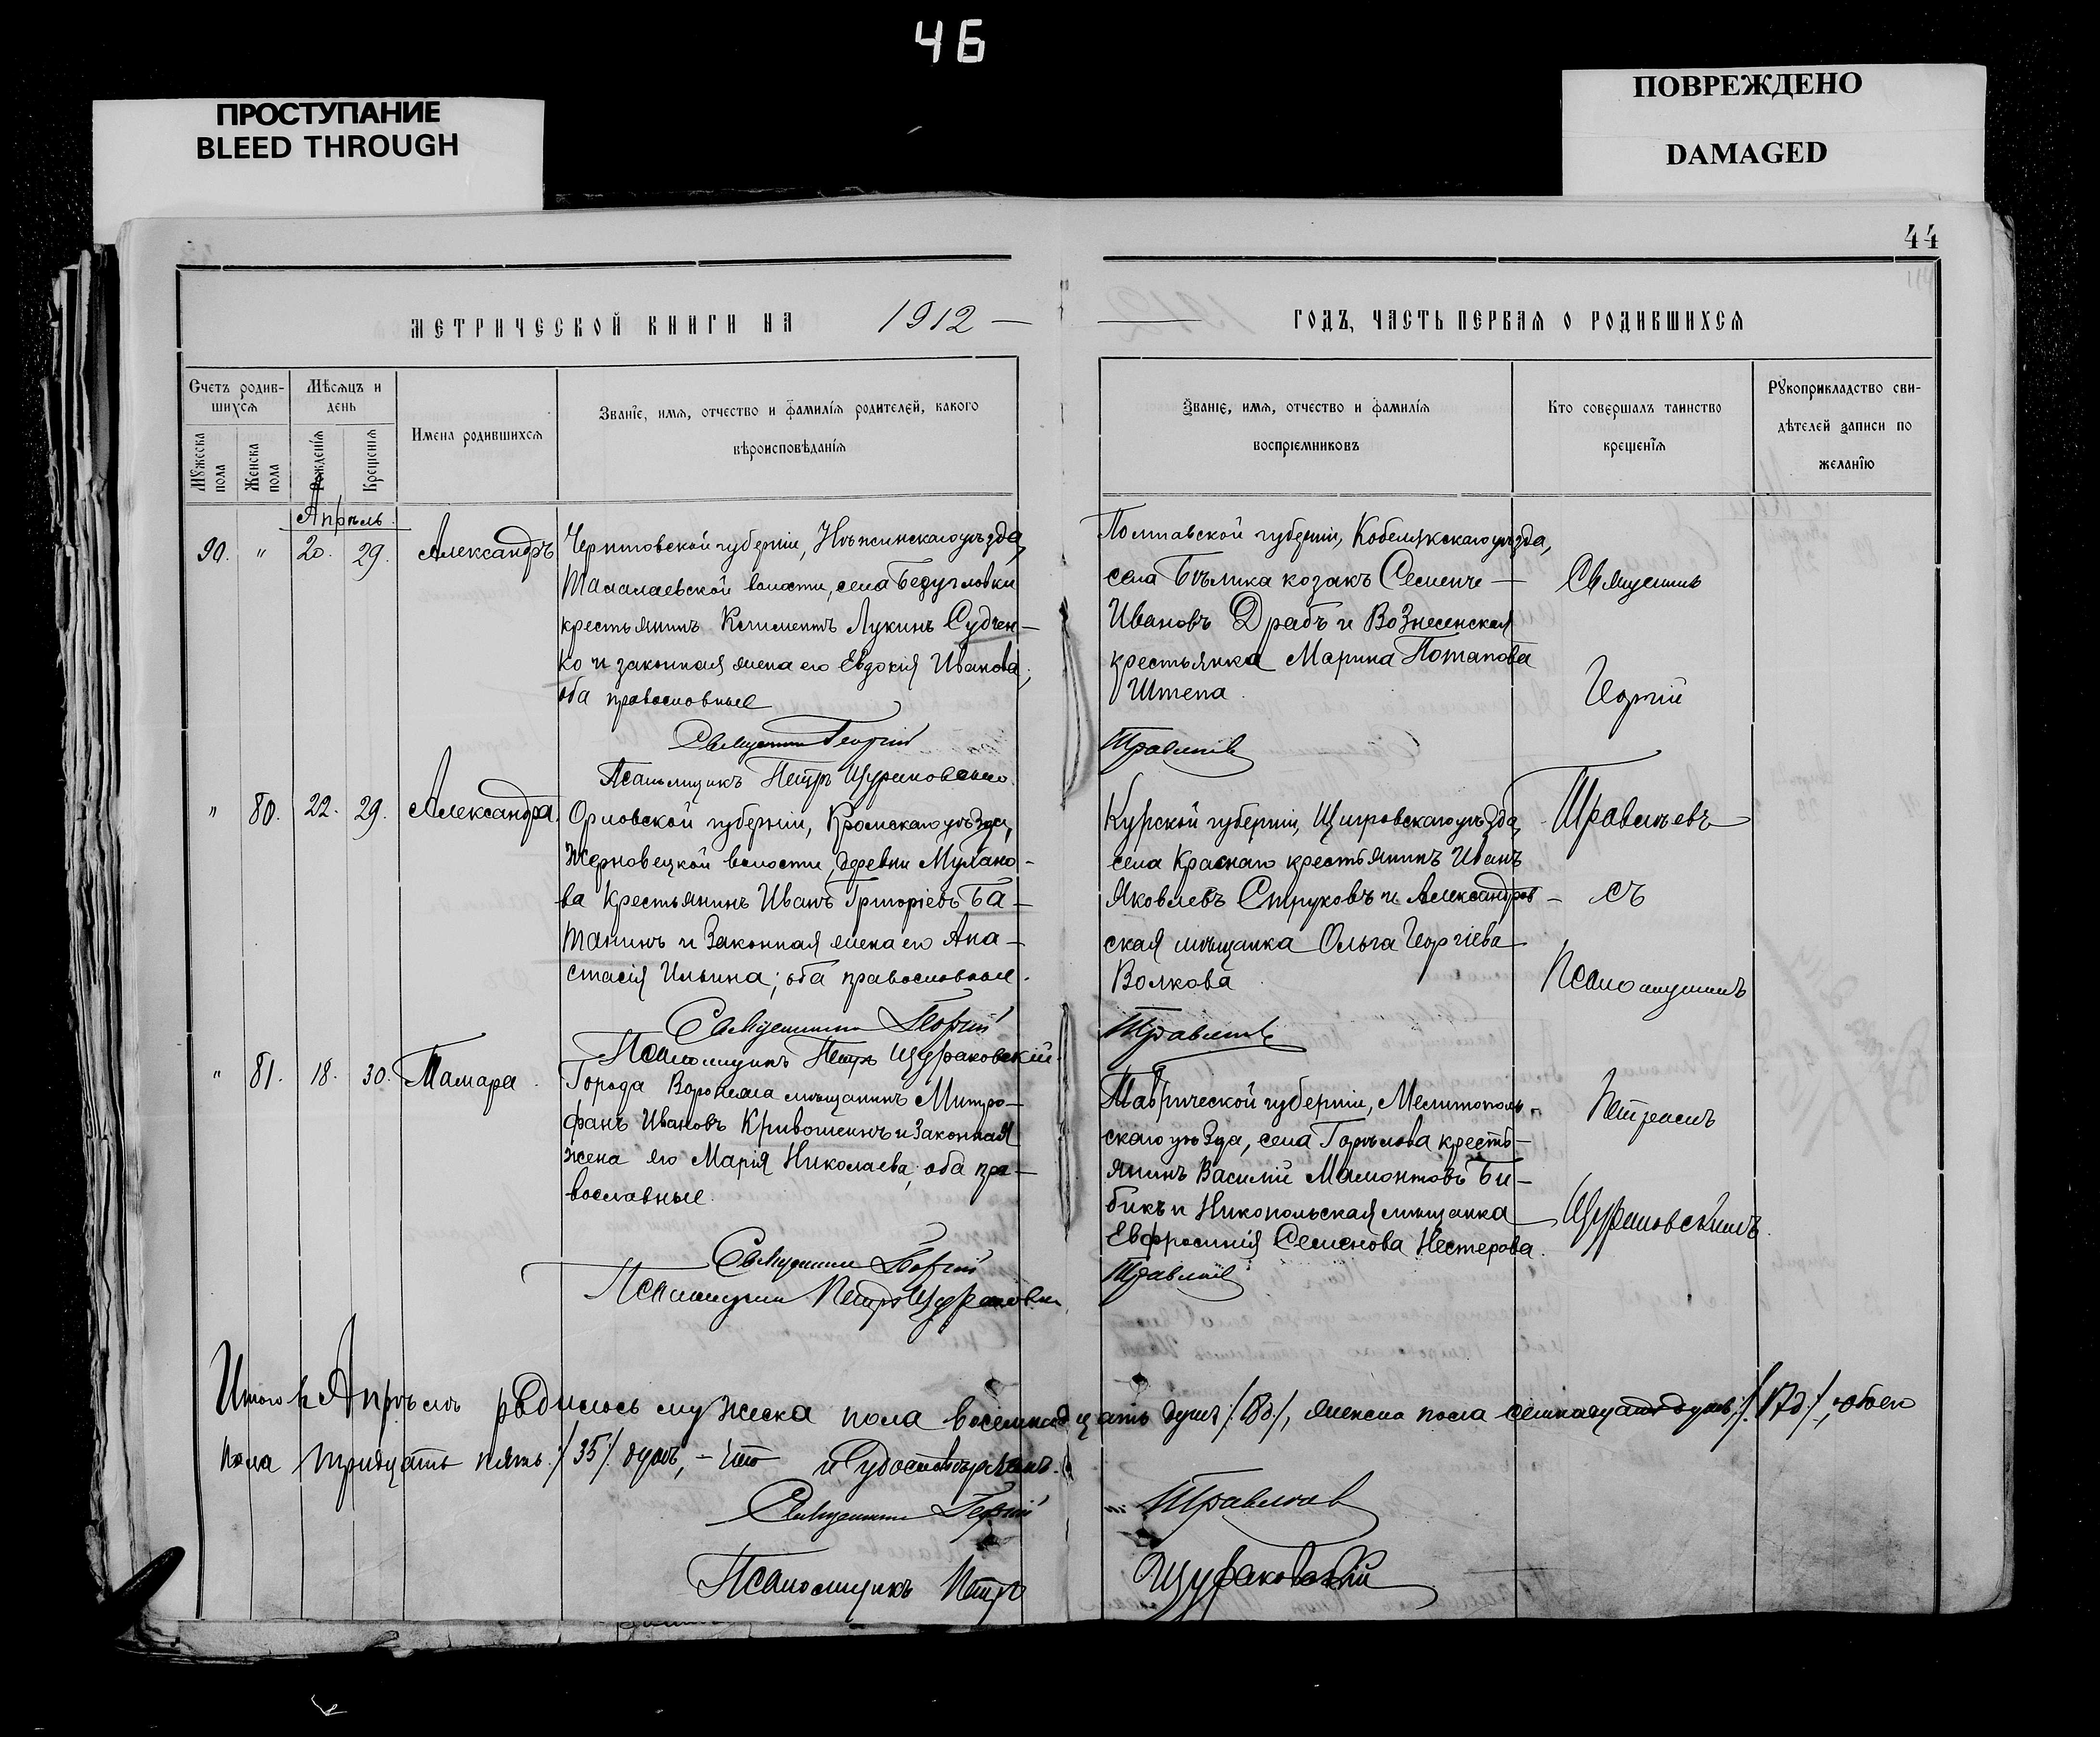 46
ПРОСТУПАНИЕ
BLEED THROUGH
ПОВРЕЖДЕНО
DAMAGED
44
МЕТРИЧЕСКОЙ КНИГИ НА 1912
ГОДЪ, ЧАСТЬ ПЕРВАЯ О РОДИВШИХСЯ
Счетъ родив-
шихся
Мужеска пола
Женска пола
Мѣсяцъ и
день
Рожденія
Крещенія
Имена родившихся
Званіе, имя, отчество и фамилія родителей, какого
вѣроисповѣданія
Званіе, имя, отчество и фамилія
воспріемниковъ
Кто совершалъ таинство
крещенія
Рукоприкладство сви-
дѣтелей записи по
желанію
Апрѣль
90. " 20. 29. Александръ
Черниговской губерніи, Нѣжинскаго уѣзда,
Талалаевской волости, села Бедугловки
крестьянинъ Климентъ Лукинъ Судчен-
ко и законная жена его Евдокія Иванова;
оба православные
Священникъ Георгій
Псаломщикъ Петръ Щураковскій.
Полтавской губерніи, Кобелякскаго уѣзда,
села Бѣлика козакъ
Ивановъ Драбъ и Вознесенская
крестьянка Марина Потапова
Штепа.
Травлѣевъ
" 80. 22. 29. Александра.
Орловской губерніи, Кромскаго уѣзда,
Жерновецкой волости, деревни Мулано-
ва крестьянинъ Иванъ Григоріевъ Ба-
танинъ и законная жена его Ана-
стасія Ильина; оба православные.
Священникъ Георгій
Псаломщикъ Петръ Щураковскій.
Курской губерніи, Щигровскаго уѣзда,
села Краснаго крестьянинъ Иванъ
Яковлевъ Струковъ и Александров-
ская мѣщанка Ольга Георгіева
Волкова
Травлѣевъ
" 81. 18. 30. Тамара.
Города Воронежа мѣщанинъ Митро-
фанъ Ивановъ Кривошеинъ и законная
жена его Марія Николаева; оба пра-
вославные.
Священникъ Георгій
Псаломщикъ Петръ Щураковскій
Таврической губерніи, Мелитополь-
скаго уѣзда, села Горѣлова кресть-
янинъ Василій Мамонтовъ Би-
бикъ и Никопольская мѣщанка
Евфросинія Семенова Нестерова.
Травлѣевъ
Священникъ
Георгій
Травлѣевъ
съ
Псаломщикомъ
Петромъ
Щураковскимъ.
Итого въ Апрѣлѣ родилось мужеска пола восемнадцать душъ /18д/, женска пола семнадцать душъ /17д/, обоего
пола тридцать пять /35/ душъ, – что и удостовѣряемъ.
Священникъ Георгій Травлѣевъ
Псаломщикъ Петръ Щураковскій